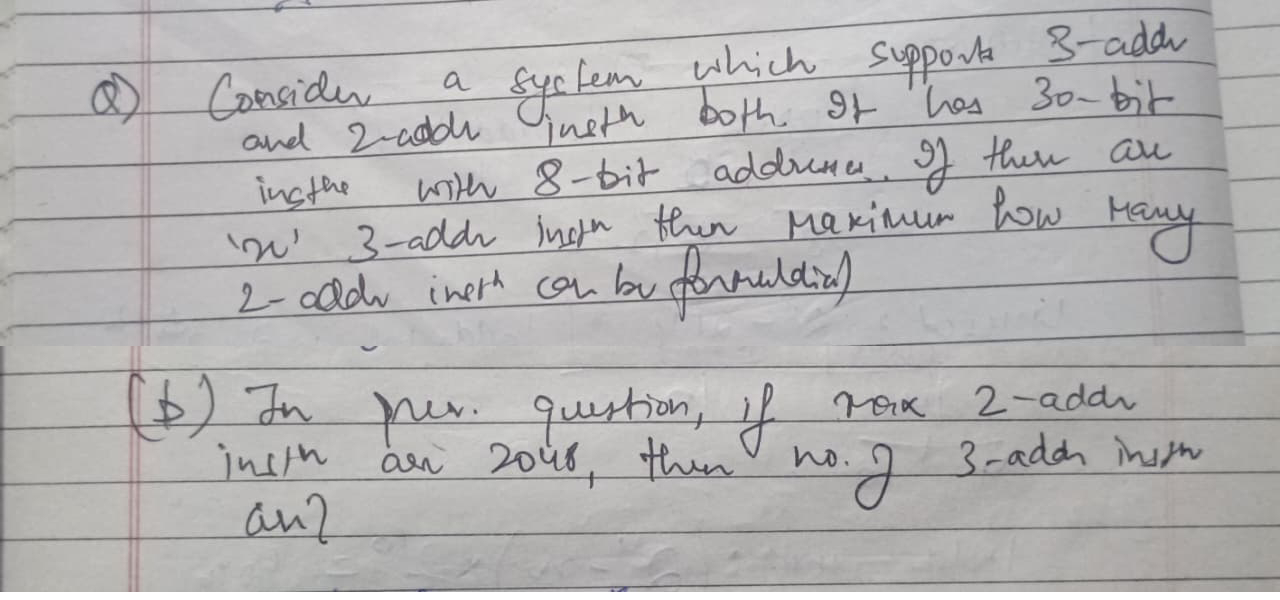 Q) Consider a system which supports 3-addr
and 2-addr instn both. It has 30-bit
instns with 8-bit addresses. If there are
'n' 3-addr instn then maximum how many
2-addr instn can be formulated
(b) In prev. question, if max 2-addr
instn are 2048, then no. of 3-addr instn
are?